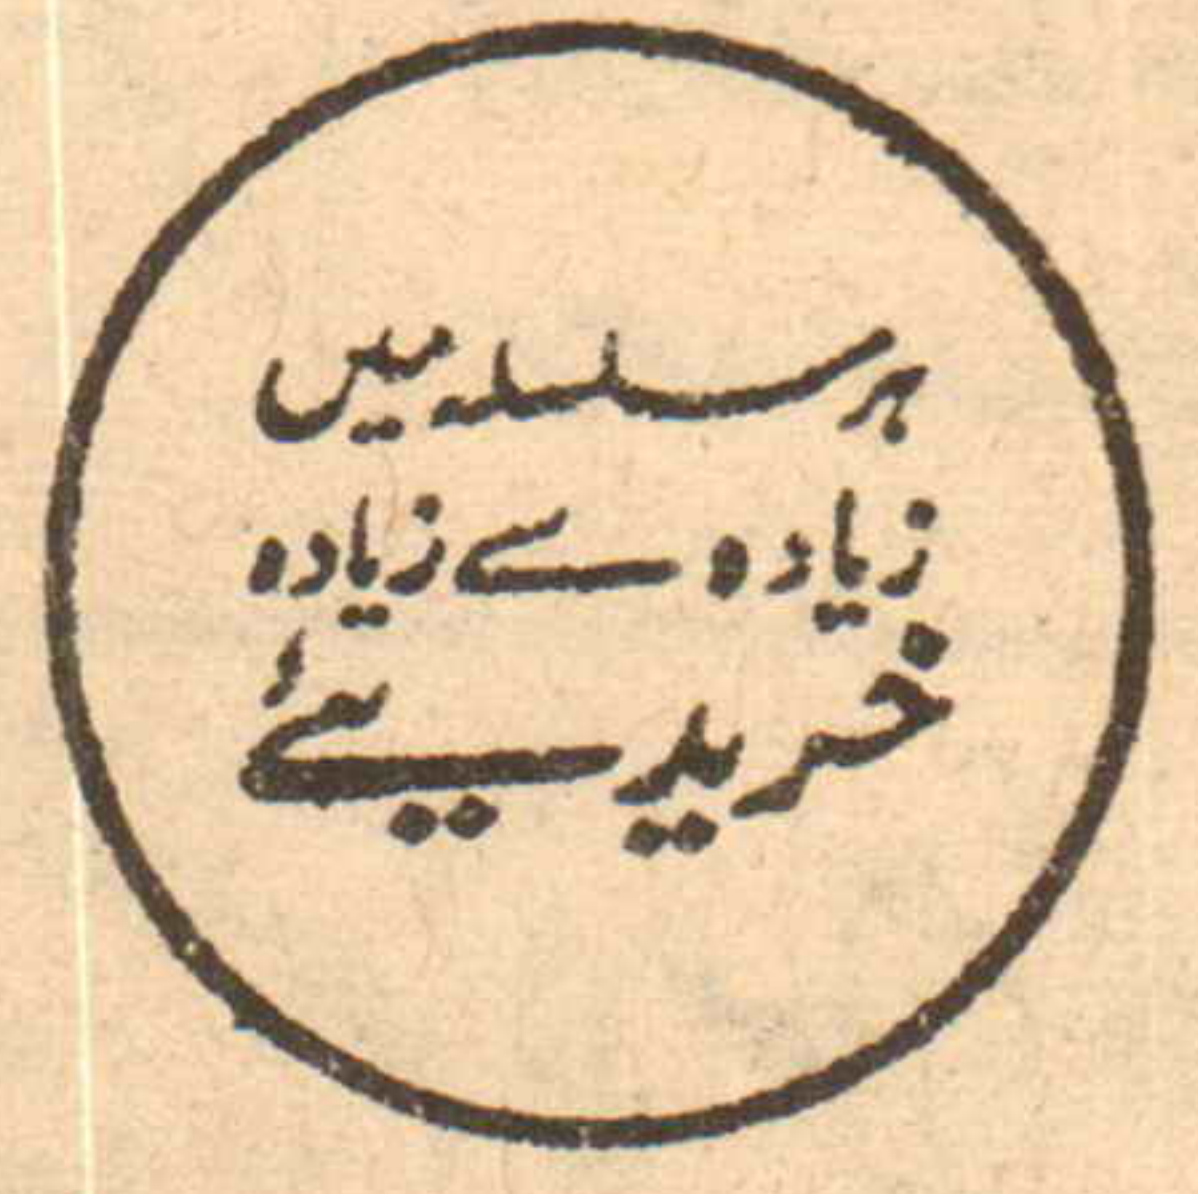 ہر سلسلہ میں
زیادہ سے زیادہ
خریدیئے